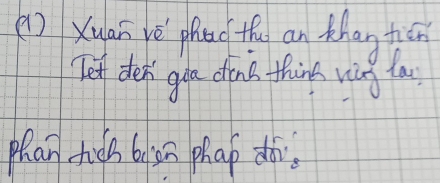 (1) Xuân về phúc thọ an khang tiến
Tết đến gia đình thịnh vượng lai
phân tích biện pháp đối: